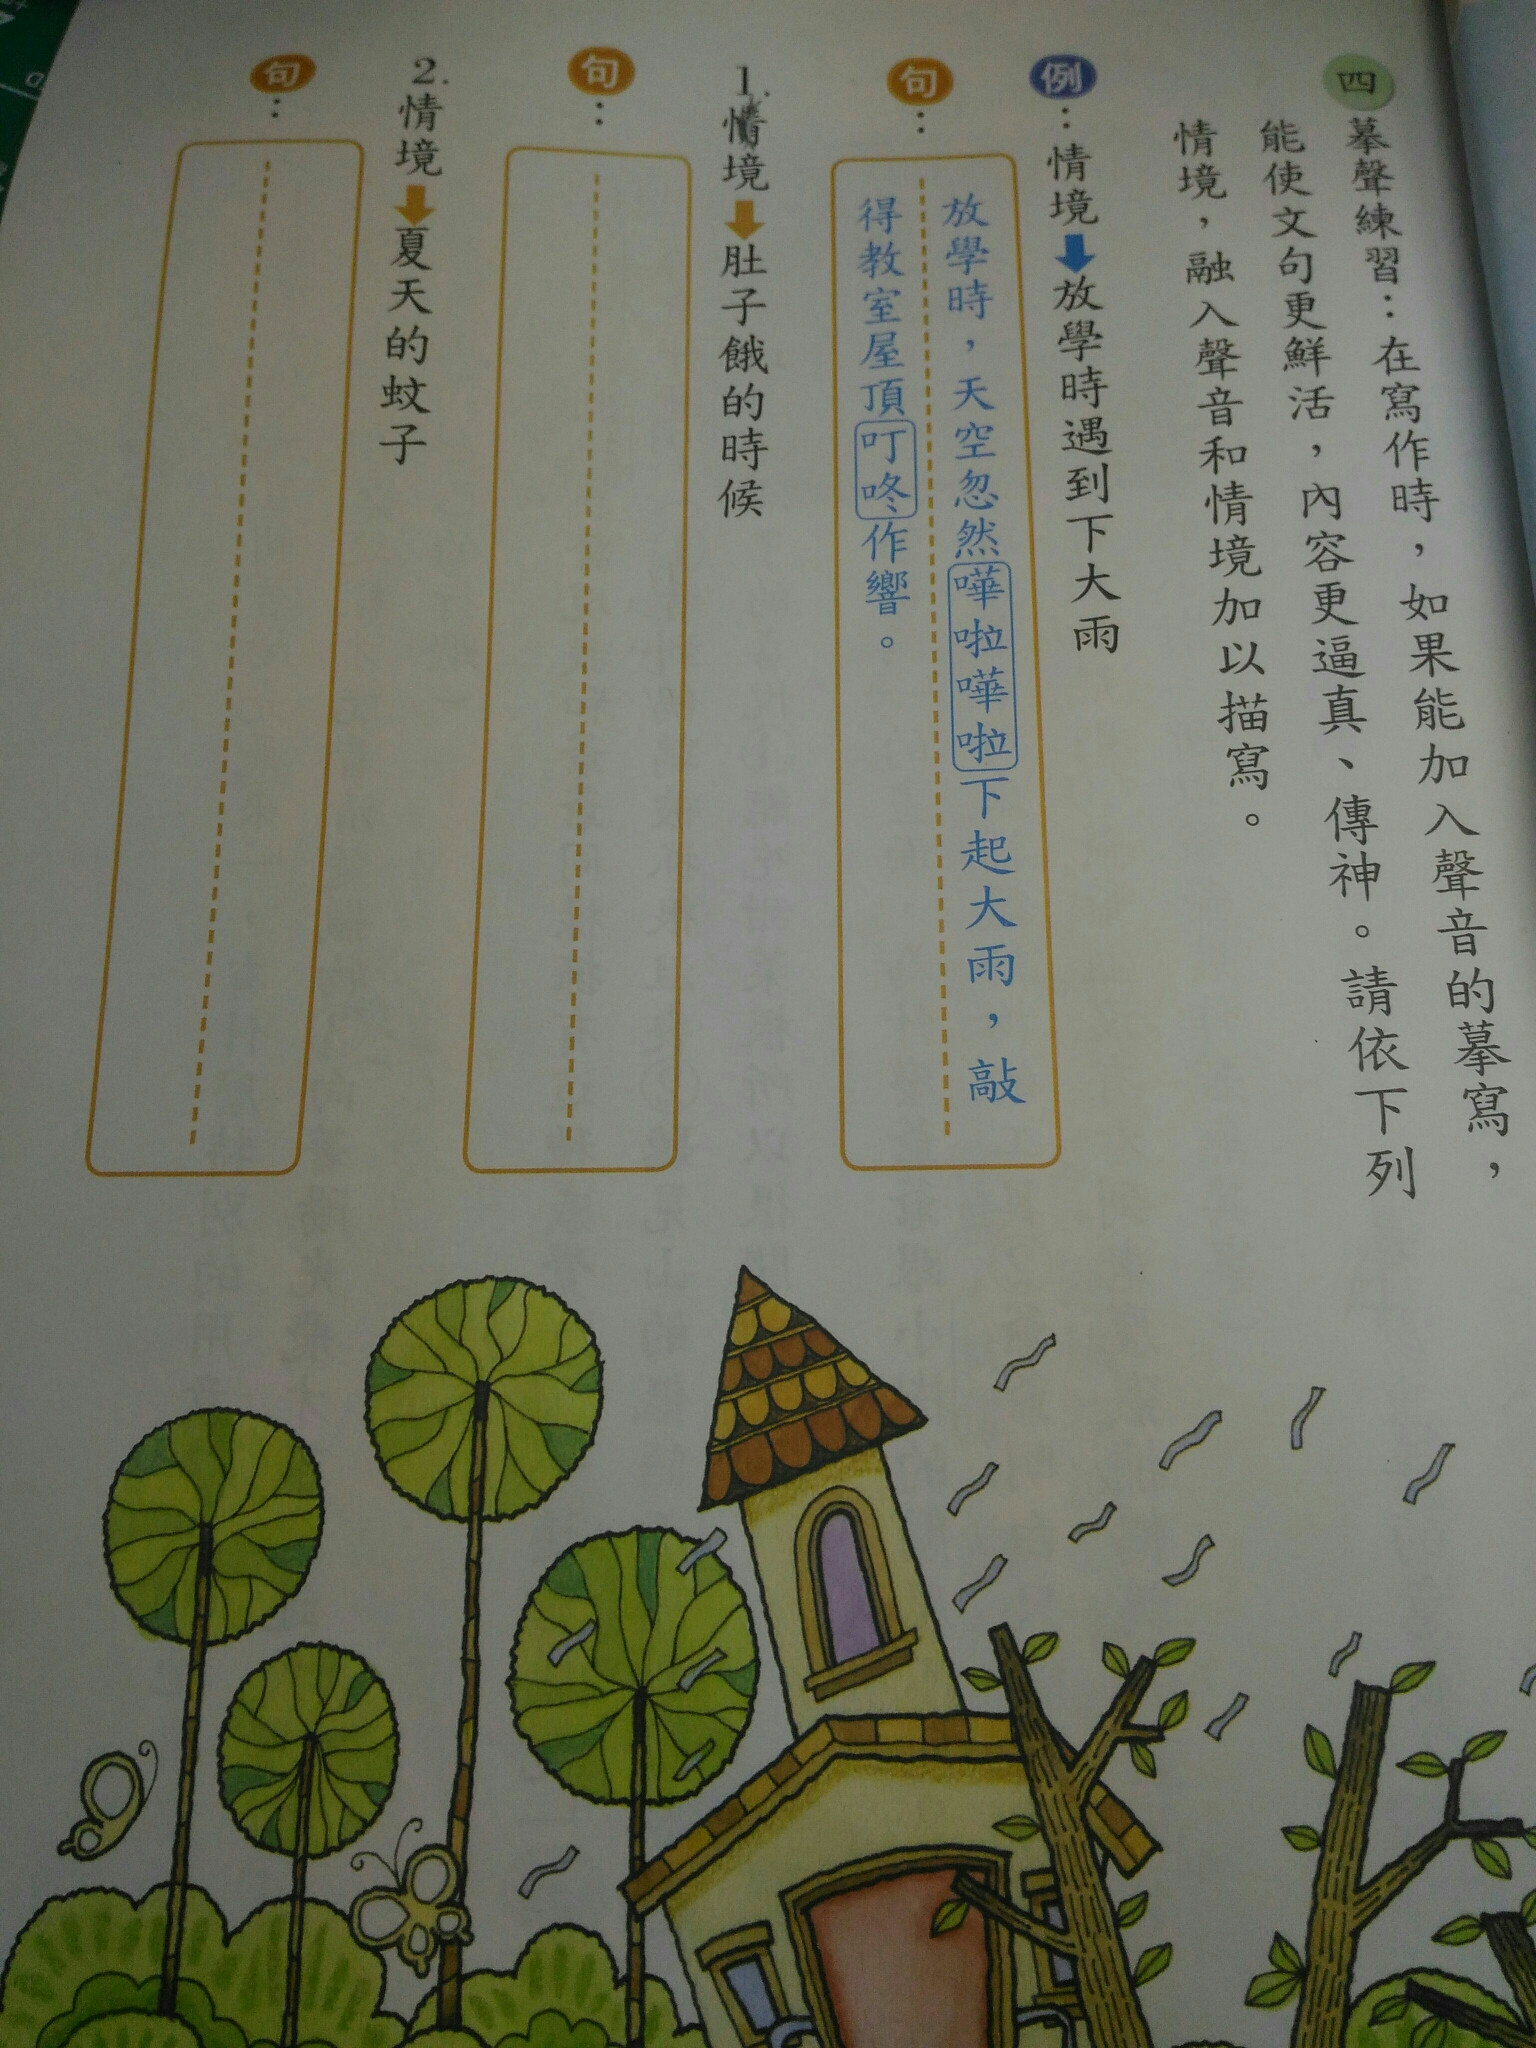 四 摹聲練習：在寫作時，如果能加入聲音的摹寫，
能使文句更鮮活，內容更逼真、傳神。請依下列
情境，融入聲音和情境加以描寫。
例：情境➡放學時遇到下大雨
句：放學時，天空忽然嘩啦嘩啦下起大雨，敲
得教室屋頂叮咚作響。
1.情境➡肚子餓的時候
句：
2.情境➡夏天的蚊子
句：